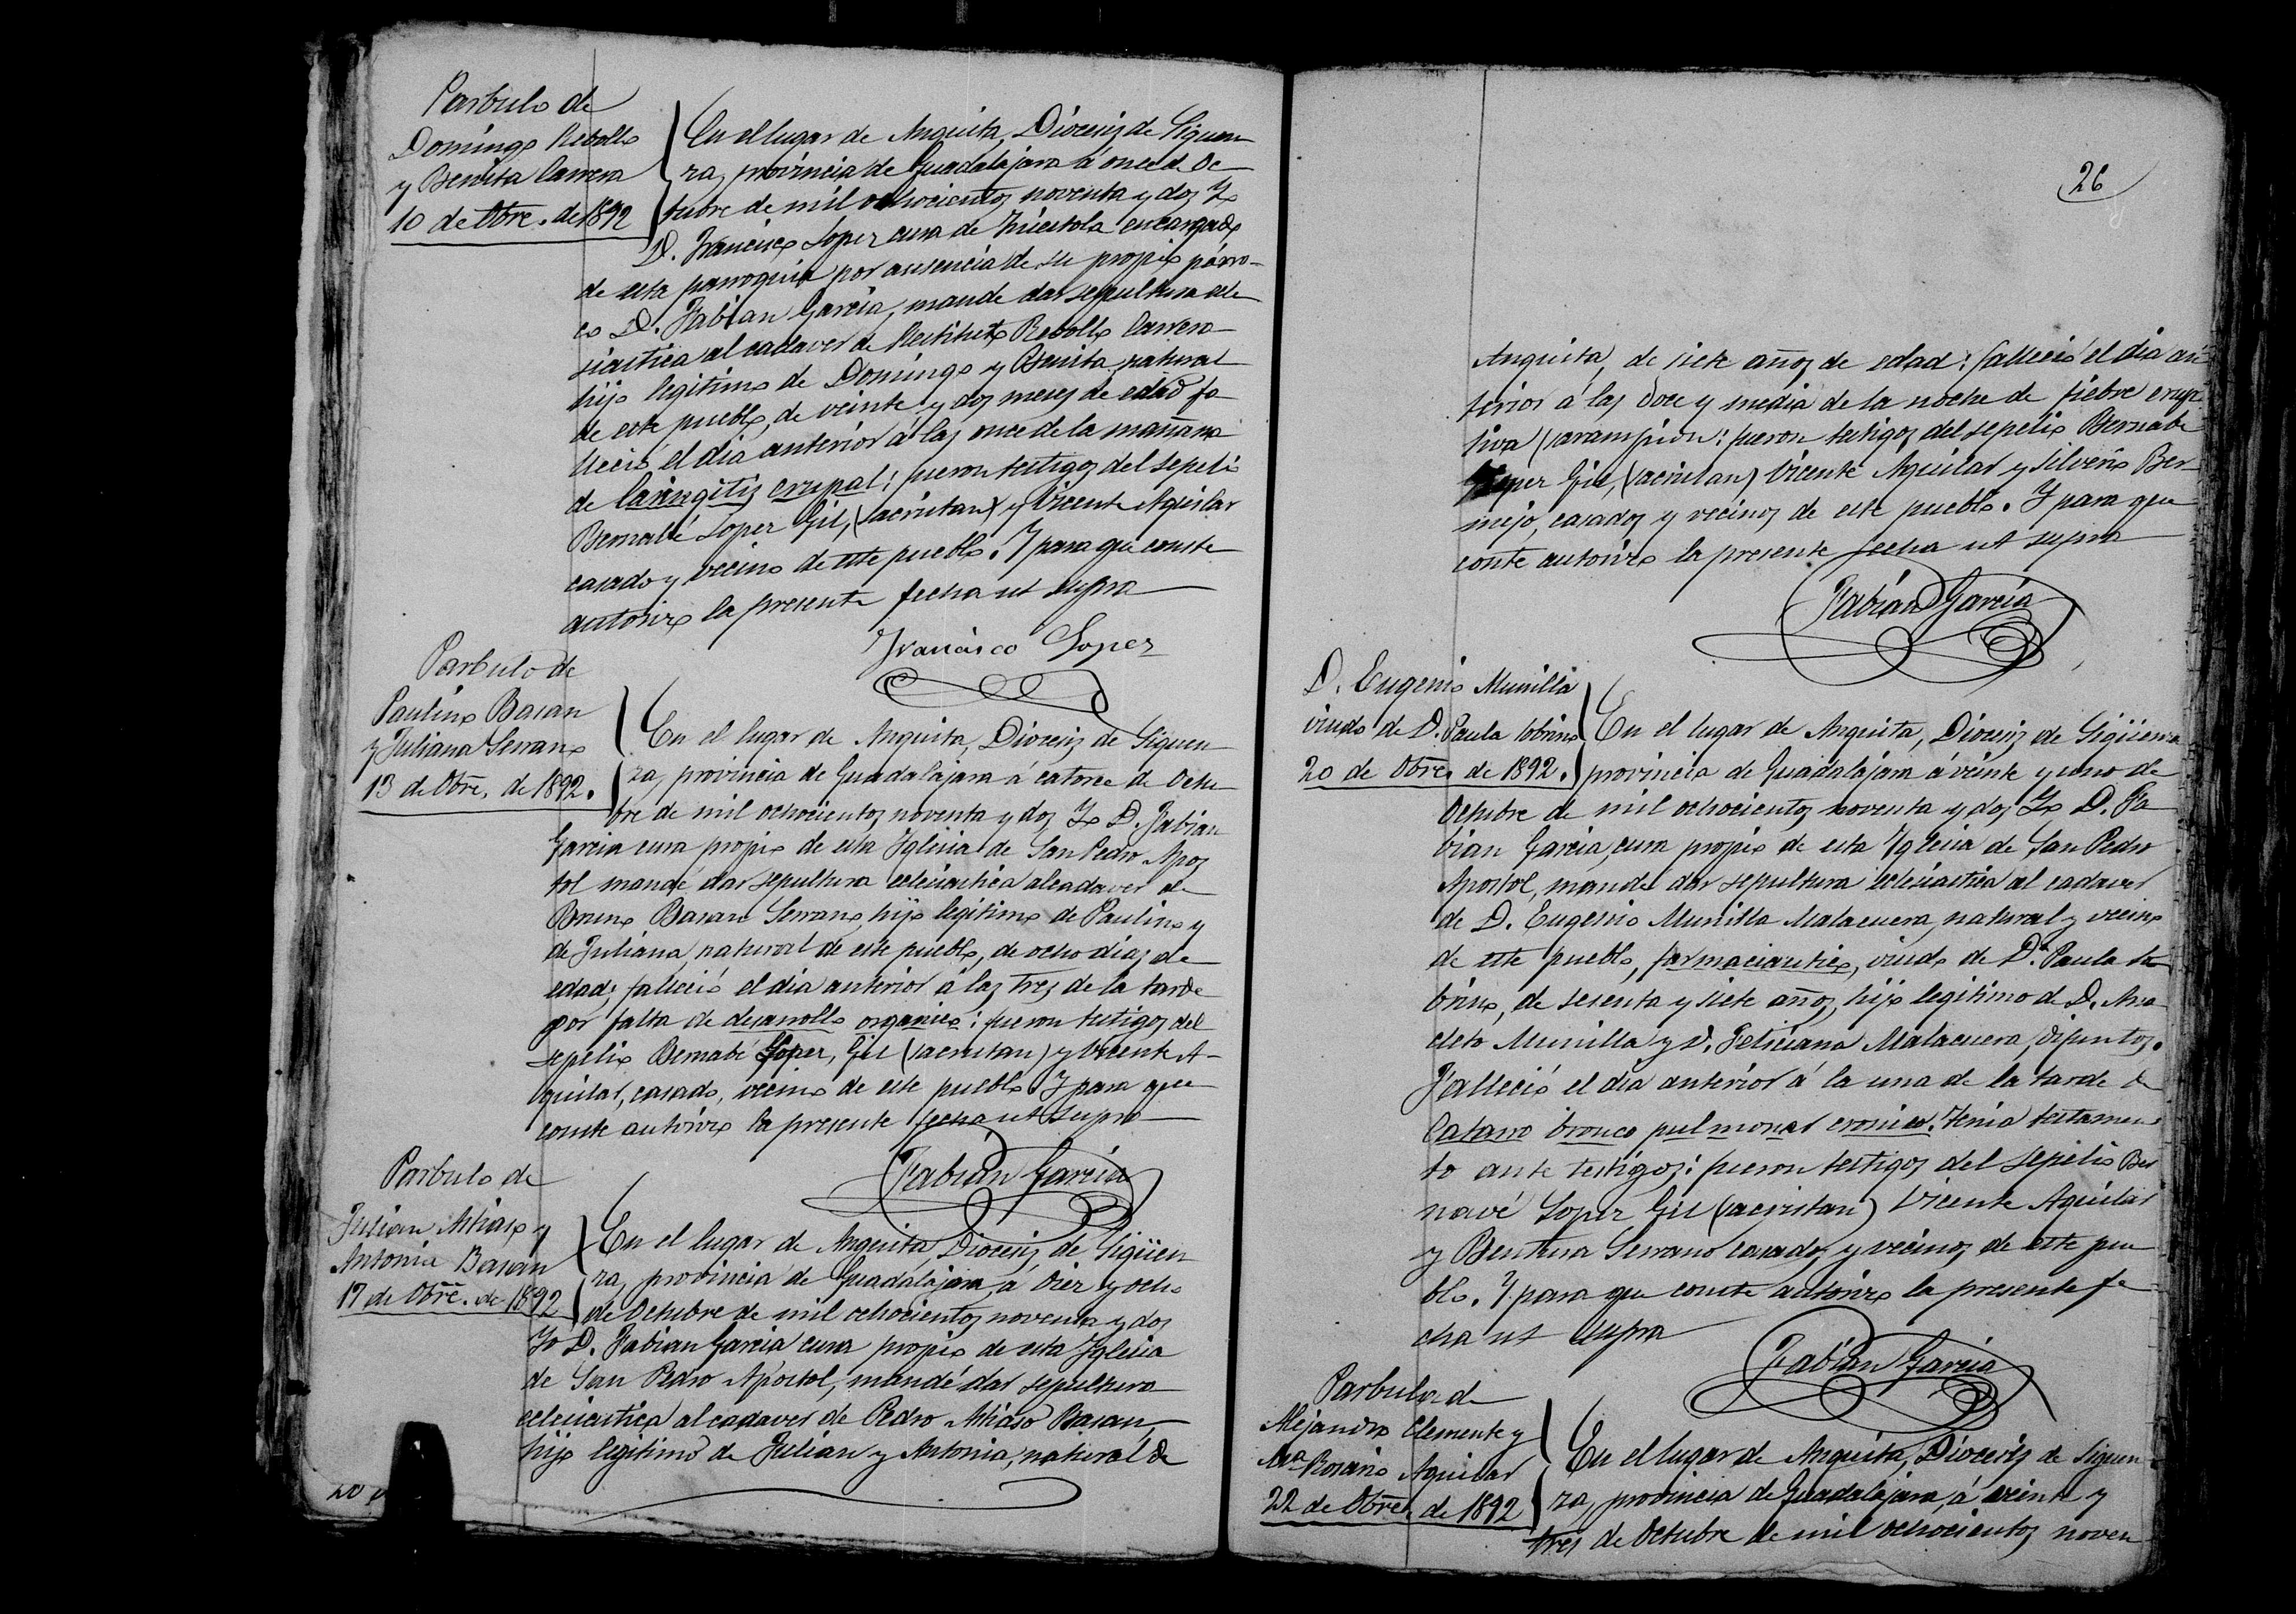 Parbulo de
Domingo Rebollo
y Benita Carrera
10 de Obre. de 1892
En el lugar de Anguita, Diocesiz de Siguen
za, provincia de Guadalajara á once de Oc
tubre de mil ochocientoz noventa y doz Yo
D. Francisco Loper cura de encargado
de esta parroquia por ausencia de su propio párro-
co D. Fabian Garcia, mande dar sepultura ecle
siastica al cadaver de Restituto Rebollo Carrera
hijo legitimo de Domingo y Benita, natural
de este pueblo, de veinte y doz mesez de edad fa
llecio el dia anterior á laz once de la mañana
de laringitiz crupal; fueron testigoz del sepelio
Bernabé Loper Gil, (sacristan) y Vicente Aguilar
casado y vecino de este pueblo. Y para que conste
autorizo la presente fecha ut supra
Francisco Loper
Parbulo de
Paulino Basan
y Juliana Serrano
13 de Obre. de 1892.
En el lugar de Anguita, Diocesiz de Siguen
za, provincia de Guadalajara á catorce de Octu
bre de mil ochocientoz noventa y doz Yo D. Fabian
Garcia cura propio de esta Iglesia de San Pedro Apoz
tol mandé dar sepultura eclesiastica al cadaver de
Bruno Basan Serrano, hijo legitimo de Paulino y
de Juliana, natural de este pueblo, de ocho diaz de
edad; falleció el dia anterior á laz trez de la tarde
por falta de desarrollo organico: fueron testigoz del
sepelio Bernabé Loper, Gil (sacristan) y Vicente A-
guilar, casado, vecino de este pueblo Y para que
conste autorizo la presente fecha ut supra
Fabian Garcia
Parbulo de
Julian y
Antonia Basan
17 de Obre. de 1892
En el lugar de Anguita, Diocesiz, de Sigüen
za, provincia de Guadalajara, á diez y ocho
de Octubre de mil ochocientoz noventa y doz
Yo D. Fabian Garcia cura propio de esta Iglesia
de San Pedro Apostol, mandé dar sepultura
eclesiastica al cadaver de Pedro Basan,
hijo legitimo de Julian y Antonia, natural de
26
Anguita, de siete añoz de edad: falleció el dia an
terior á laz doce y media de la noche de fiebre erup
tiva (sarampion: fueron testigoz del sepelio Bernabe
Loper Gil, (sacristan) Vicente Aguilar y Silverio Ber
mejo, casadoz y vecinoz de este pueblo. Y para que
conste autorizo la presente fecha ut supra
Fabián Garcia
D. Eugenio Munilla
viudo de D. Paula Sobrino
20 de Obre. de 1892.
En el lugar de Anguita, Diocesiz de Sigüenza
provincia de Guadalajara á veinte y uno de
Octubre de mil ochocientoz noventa y doz Yo D. Fa
bian Garcia, cura propio de esta Yglesia de San Pedro
Apostol, mandé dar sepultura eclesiastica al cadaver
de D. Eugenio Munilla Malacuera, natural y vecino
de este pueblo, farmaciautico, viudo de Da. Paula So
brino, de sesenta y siete añoz, hijo legitimo de D. Ana
cleto Munilla y D. Feliciana Malacuera, difuntoz.
Falleció el dia anterior á la una de la tarde de
Catarro bronco pulmonar cronico. Tenia testamen
to ante testigoz: fueron testigoz del sepelio Ber
navé Loper Gil (sacristan) Vicente Aguilar
y Bentura Serrano casadoz, y vecinoz de este pue
blo. Y para que conste autorizo la presente fe
cha ut supra
Fabian Garcia
Parbulo de
Alejandro Clemente y
Ma. Rosario Aguilar
22 de Obre. de 1892
En el lugar de Anguita, Diocesiz de Siguen
za, provincia de Guadalajara, á veinte y
trez de Octubre de mil ochocientoz noven